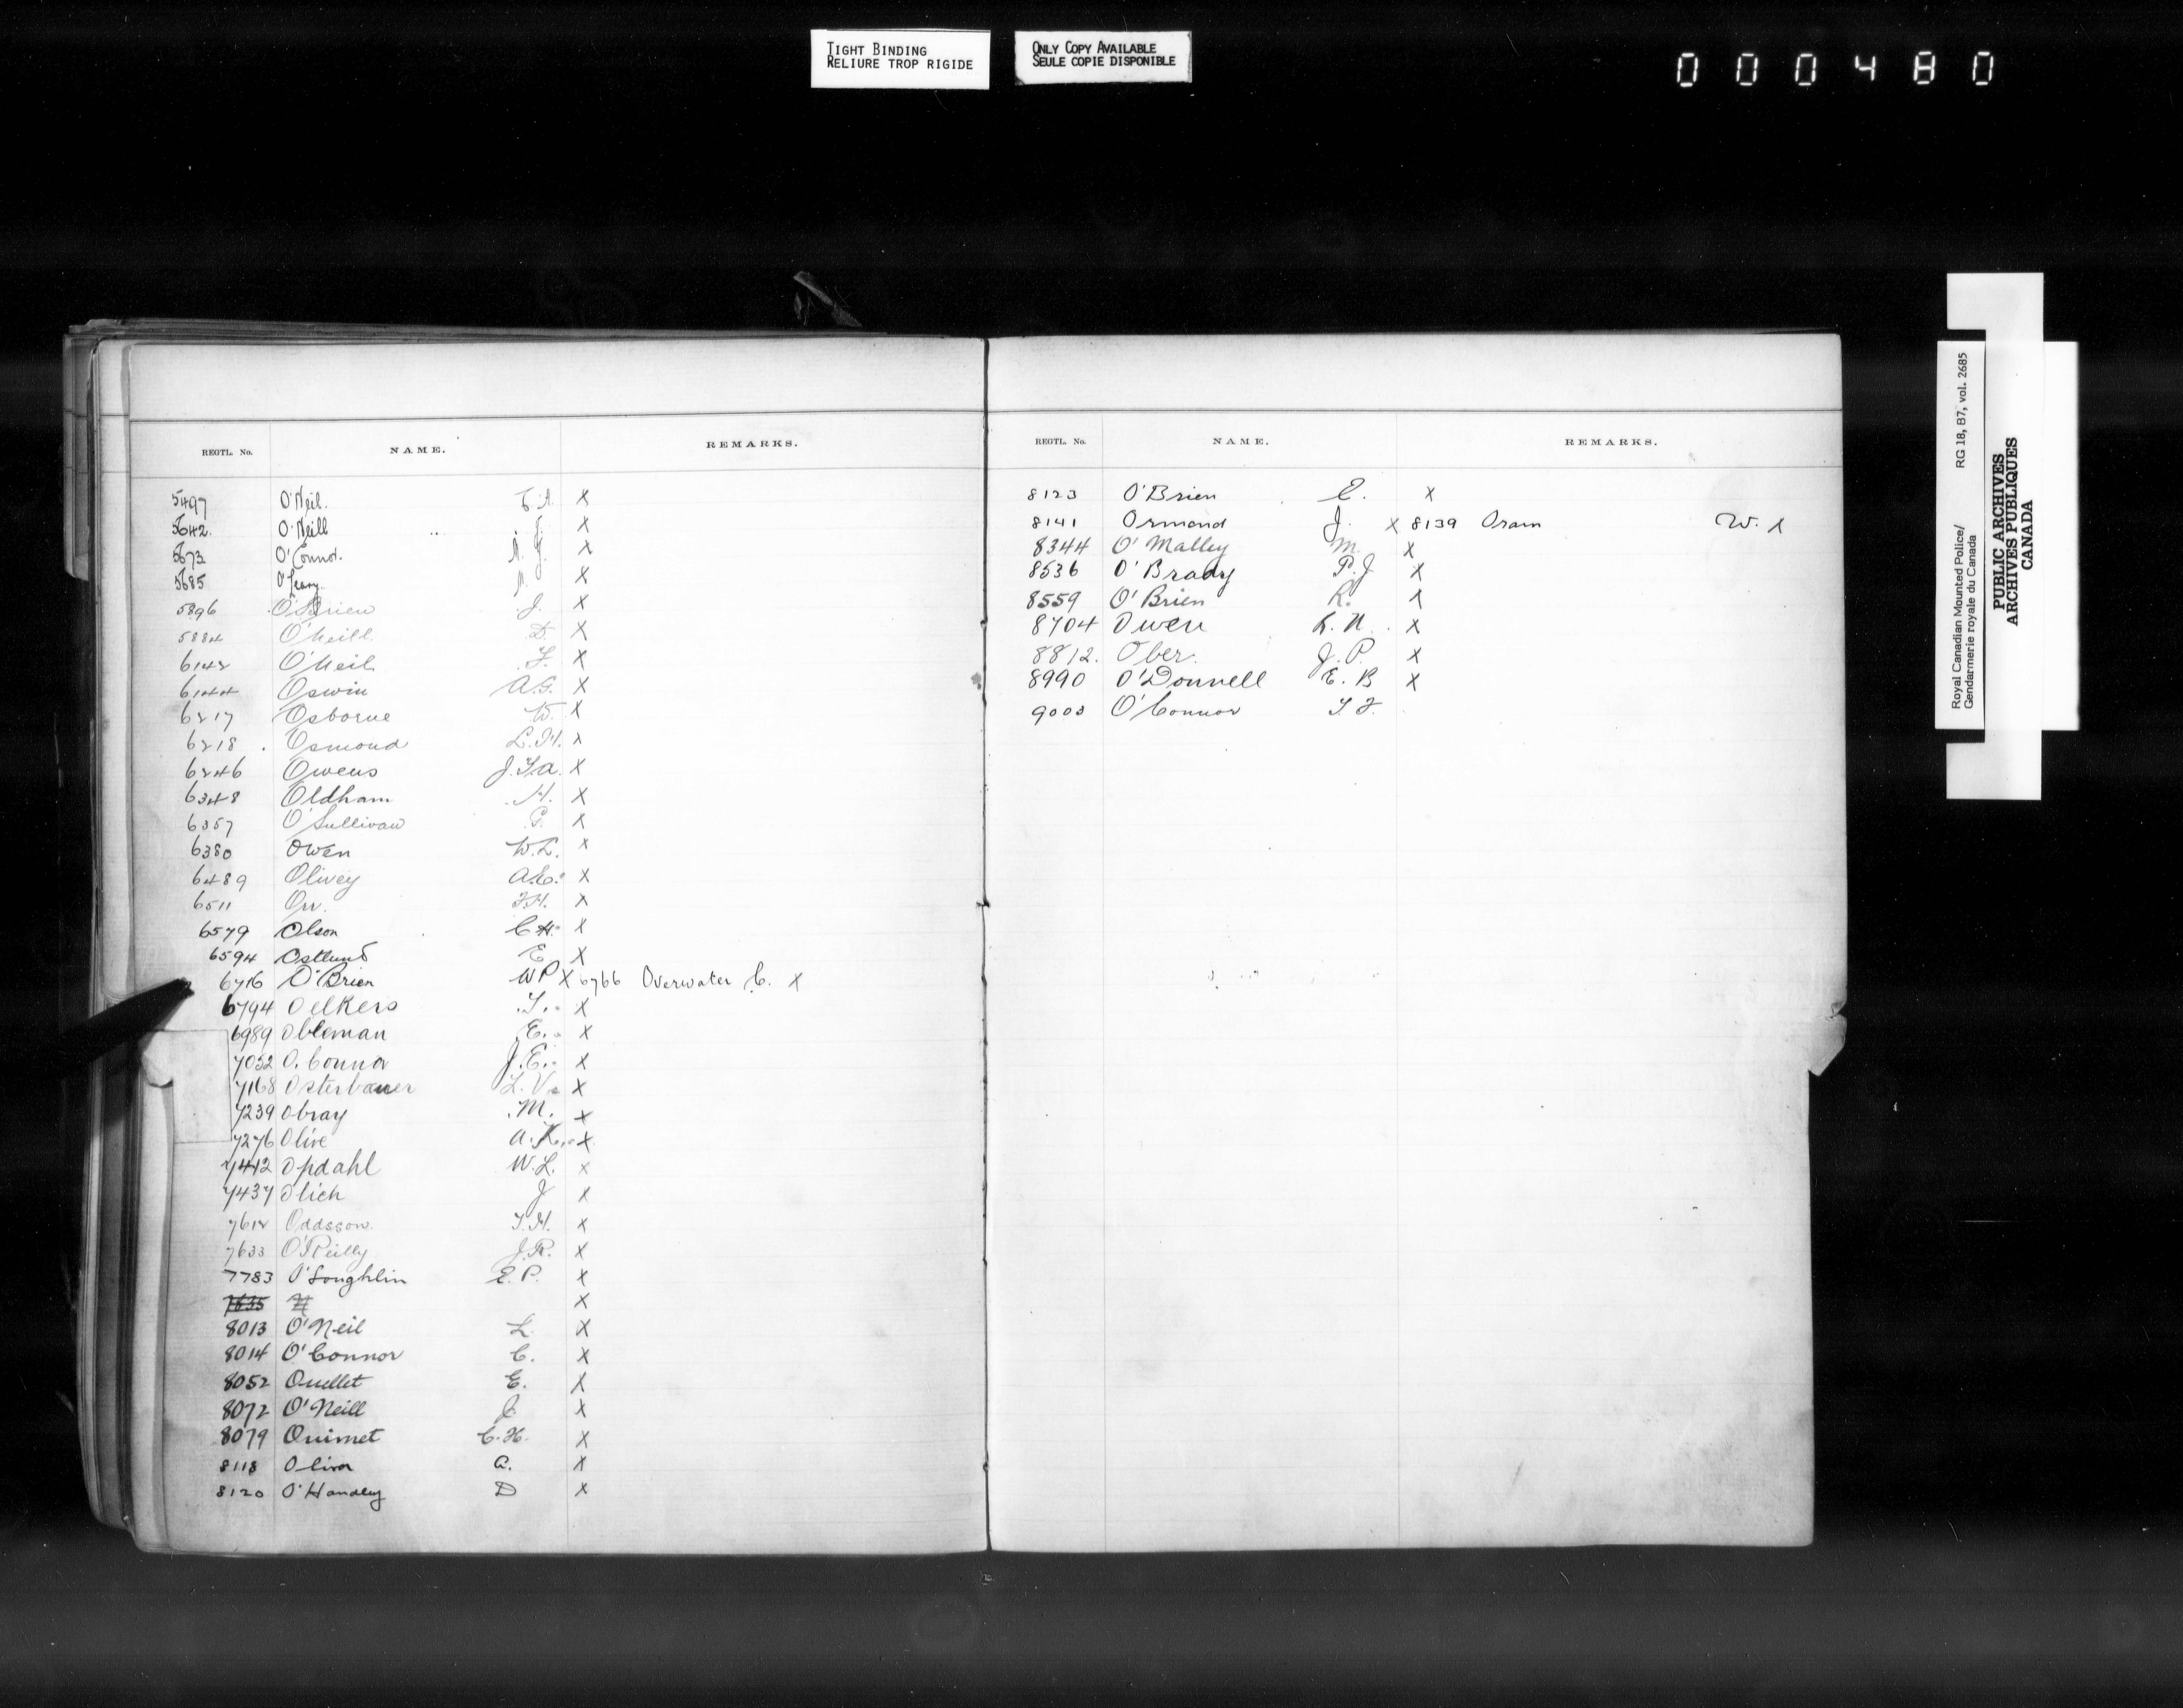 TIGHT BINDING
RELIURE TROP RIGIDE
ONLY COPY AVAILABLE
SEULE COPIE DISPONIBLE
000480
REGTL. No. NAME. REMARKS.
5497 O'Neil. X
5642. O'Neill J. X
5673 O'Connor. X
5685 O'Leary X
5896 O'Brien J. X
5884 O'Neill D. X
6142 O'Neil F. X
6144 Oswin A.G. X
6217 Osborne W. X
6218 Osmond L.H. X
6246 Owens J.T.A. X
6348 Oldham H. X
6357 O'Sullivan P. X
6380 Owen W.L. X
6489 Olivey A.E. X
6511 Orr. F.H. X
6579 Olson C.H. X
6594 Ostlund E X
6716 O'Brien W P X 6766 Overwater C. X
6794 Oelkers T. X
6989 Obleman E. X
7052 O.Connor J.E. X
7168 Osterbauer L.V. X
7239 Obray M. X
7276 Olive A.K. X
7412 Opdahl W.L. X
7437 Olich J X
7612 Oddsson. T.H. X
7633 O'Reilly J.R. X
7783 O'Loughlin E.P. X
7635 X
8013 O'Neil L. X
8014 O'Connor C. X
8052 Ouellet E. X
8072 O'Neill J. X
8079 Ouimet C.H. X
8118 Oliver A. X
8120 O'Handley D X
REGTL. No. NAME. REMARKS.
8123 O'Brien E. X
8141 Ormond J. X 8139 Oram W. X
8344 O'Malley M. X
8536 O'Brady P.J X
8559 O'Brien R. X
8704 Owen R.N. X
8812. Ober. J.P. X
8990 O'Donnell E.B X
9003 O'Connor T.F.
Royal Canadian Mounted Police/ RG 18, B7, vol. 2685
Gendarmerie royale du Canada
PUBLIC ARCHIVES
ARCHIVES PUBLIQUES
CANADA